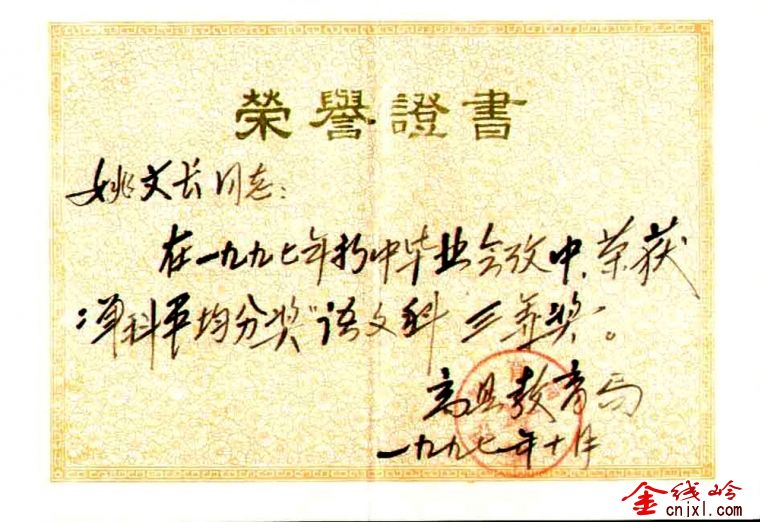 榮譽證書
姚文长同志：
在一九九七年初中毕业会考中，荣获
“单科平均分奖”语文科 三等奖。
高县教育局
一九九七年十月
金线岭
cnjxl.com